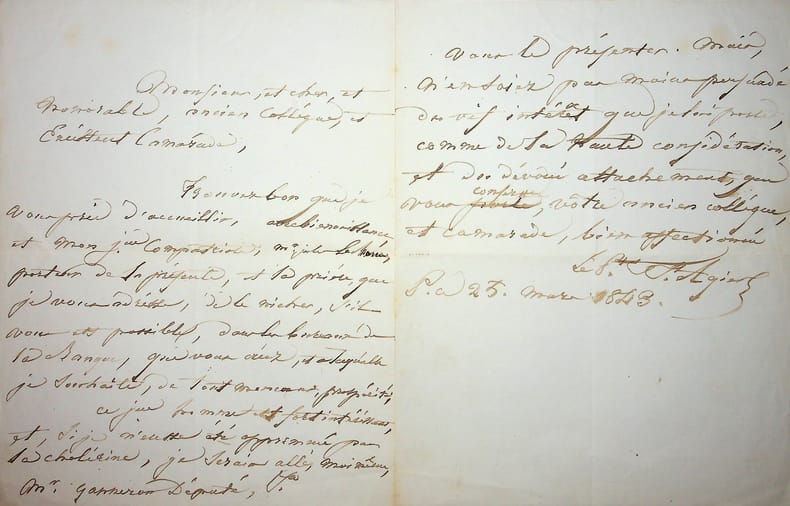 Monsieur, et cher, et
honorable, ancien Collègue, et
Excellent Camarade,
Trouvez bon que je
vous prie d'accueillir,
et mon jne Compatriote,
porteur de la présente, et la prière, que
je vous adresse, de le nicher, s'il
vous est possible, dans les bureaux de
la Banque, que vous créez, et à laquelle
je souhaite, de tout mon coeur, prospérité,
ce jne homme est fort intéressant,
et, si je n'eusse été opprimé par
la cholérine, je serais allé, moi même,
Mr. Ganneron Député,
vous le présenter. Mais,
n'en soyez pas moins persuadé
du vif intérêt que je lui porte,
comme de la haute considération,
et du dévoué attachement, que
vous conserve, votre ancien collègue,
et camarade, bien affectionné
Le
P. ce 25. mars 1843.